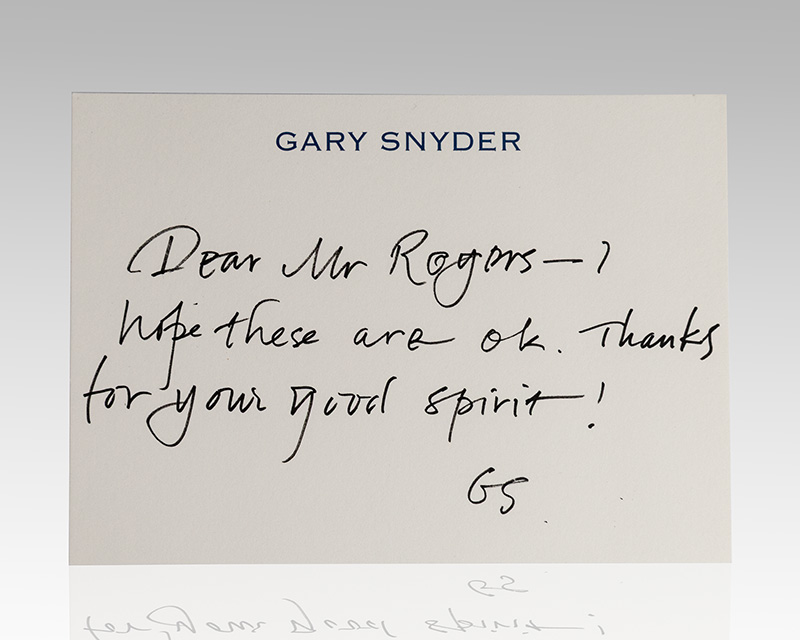 GARY SNYDER
Dear Mr Rogers — I
hope these are ok. Thanks
for your good spirit!
GS.